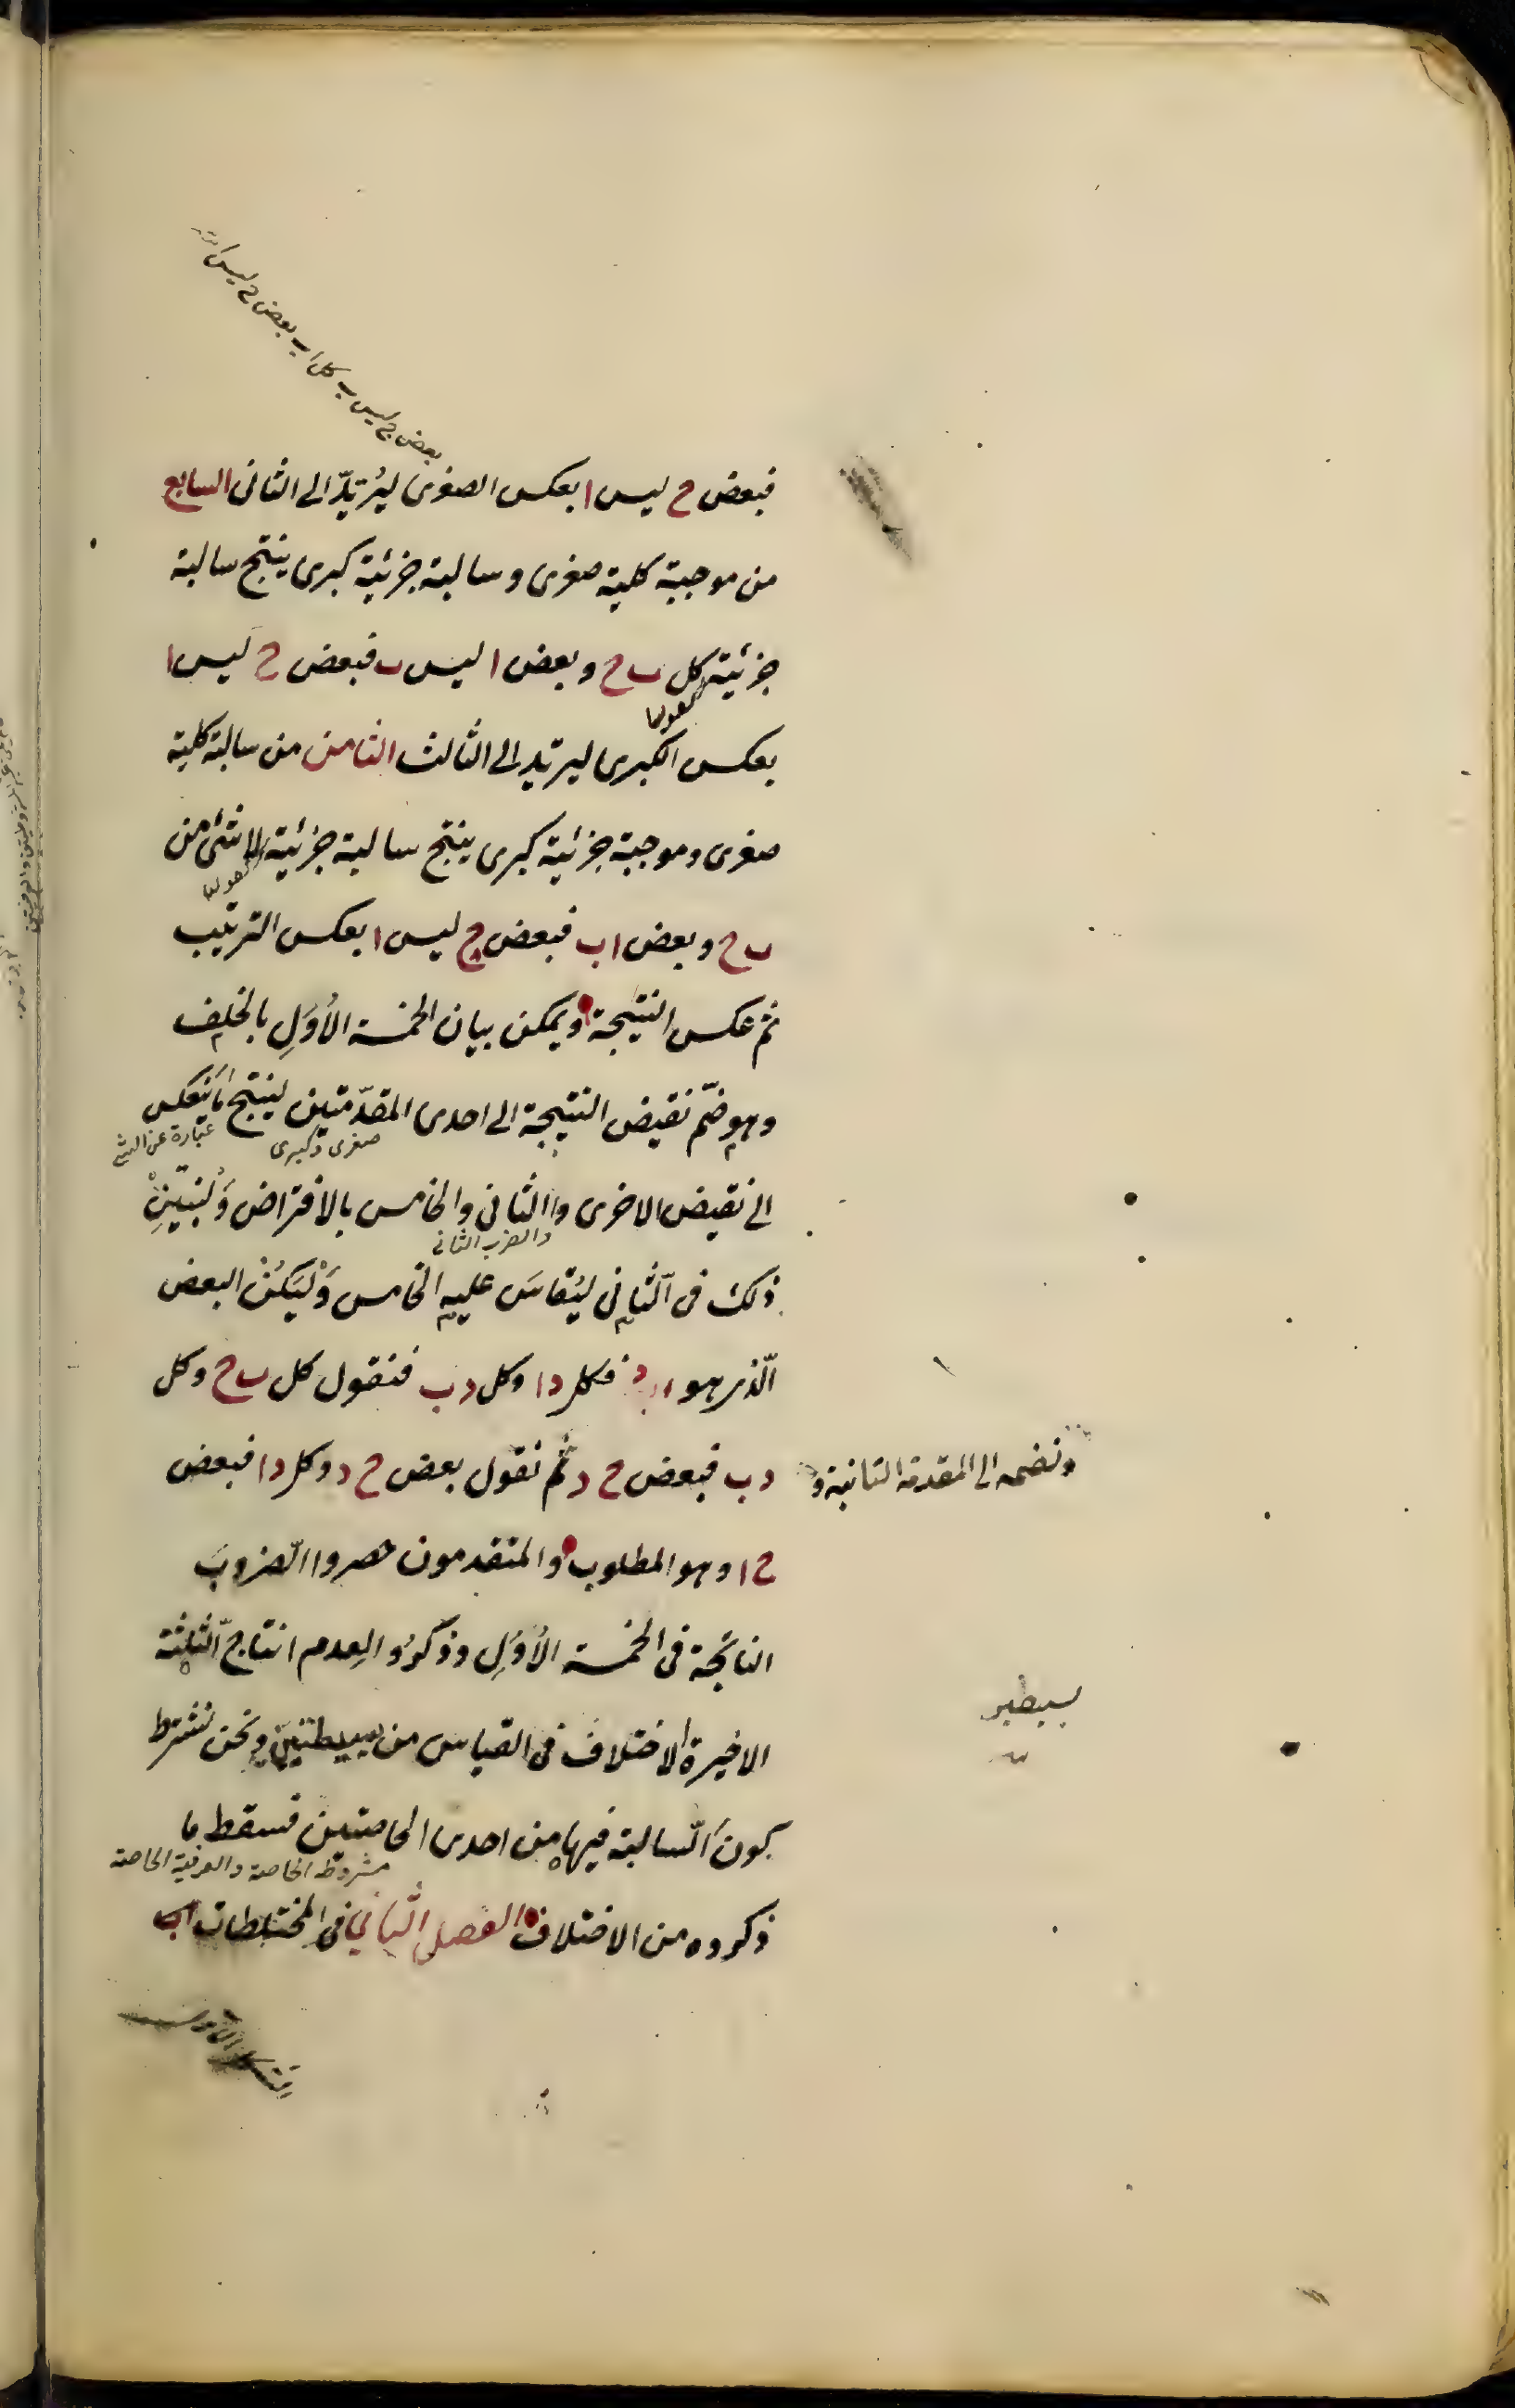 بعض ج ليس ب كل ا ب بعض ج ليس ا
فبعض ح ليس ا بعكس الصغرى ليُرتدّ الى الثانى السابع
من موجبة كلية صغرى وسالبة جزئية كبرى ينتج سالبة
جزئية كل ب ح وبعض ا ليس ب فبعض ح ليس ا
كقولنا
بعكس الكبرى ليرتد الى الثالث الثامن من سالبة كلية
صغرى وموجبة جزئية كبرى ينتج سالبة جزئية لا شئ من
كقولنا
ب ح وبعض ا ب فبعض ج ليس ا بعكس الترتيب
ثم عكس النتيجة ويمكن بيان الخمسة الأُوَلِ بالخلف
وهو ضمّ نقيض النتيجة الى احدى المقدّمتين لينتج ما ينعكس
صغرى وكبرى
عبارة عن
الى نقيض الاخرى والثانى والخامس بالافتراض وَلْنبيّنْ
والضرب الثانى
ذلك فى الثّانى ليُقاسَ عليه الخامس وَلْيَكُنْ البعض
الّذى هو ا ب د فكل د ا وكل د ب فنقول كل ب ح وكل
د ب فبعض ح د ثم نقول بعض ح د وكل د ا فبعض
ونضمه الى المقدمة الثانية و
ح ا وهو المطلوب والمتقدمون حصروا الضّروبَ
الناتجة فى الخمسة الأُوَلِ وذكرُوا لعِدم انتاج الثّلثة
الاخيرة الاختلاف فى القياس من بسيطتين ونحن نشترط
بسيطير
كونَ السّالبة فيها من احدى الخاصتين فسقط ما
مشروطة الخاصة والعرفية الخاصة
ذكروه من الاختلاف الفصل الثّانى فى المختلطات اما
الشكل الاول